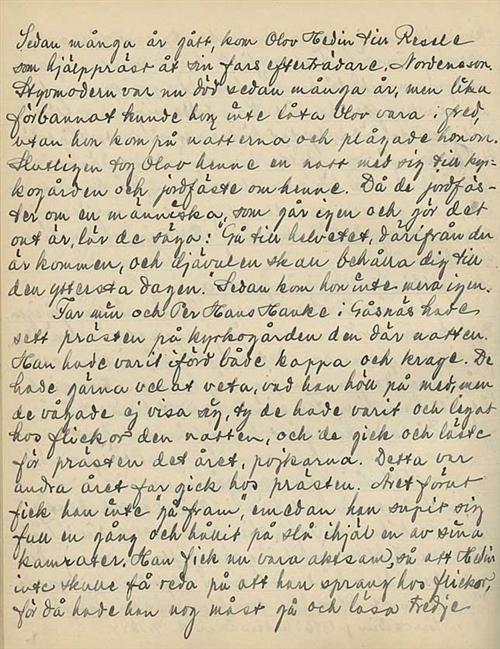 Sedan många år gått, kom Olov Hedin till Ressele
som hjälppräst åt sin fars efterträdare, Nordenson.
Styvmodern var nu död sedan många år, men lika
förbannat kunde hon inte låta Olov vara i fred,
utan hon kom på natterna och plågade honom.
Slutligen tog Olov henne en natt med sig till kyr-
kogården och jordfäste om henne. Då de jordfäs-
ter om en människa, som går igen och gör det
ont är, lär de säga: "Gå till helvetet, därifrån du
är kommen, och djävulen skall behålla dig till
den yttersta dagen." Sedan kom hon inte mera igen.
Far min och Per Hans Hanke i Gåsnäs hade
sett prästen på kyrkogården den där natten.
Han hade varit iförd både kappa och krage. De
hade gärna velat veta, vad han höll på med, men
de vågade ej visa sig, ty de hade varit och legat
hos flickor den natten, och de gick och läste
för prästen det året, pojkarna. Detta var
andra året far gick hos prästen. Året förut
fick han inte "gå fram", emedan han supit sig
full en gång och hållit på slå ihjäl en av sina
kamrater. Han fick nu vara aktsam, så att Hedin
inte skulle få reda på att han sprang hos flickor,
för då hade han nog måst gå och läsa tredje